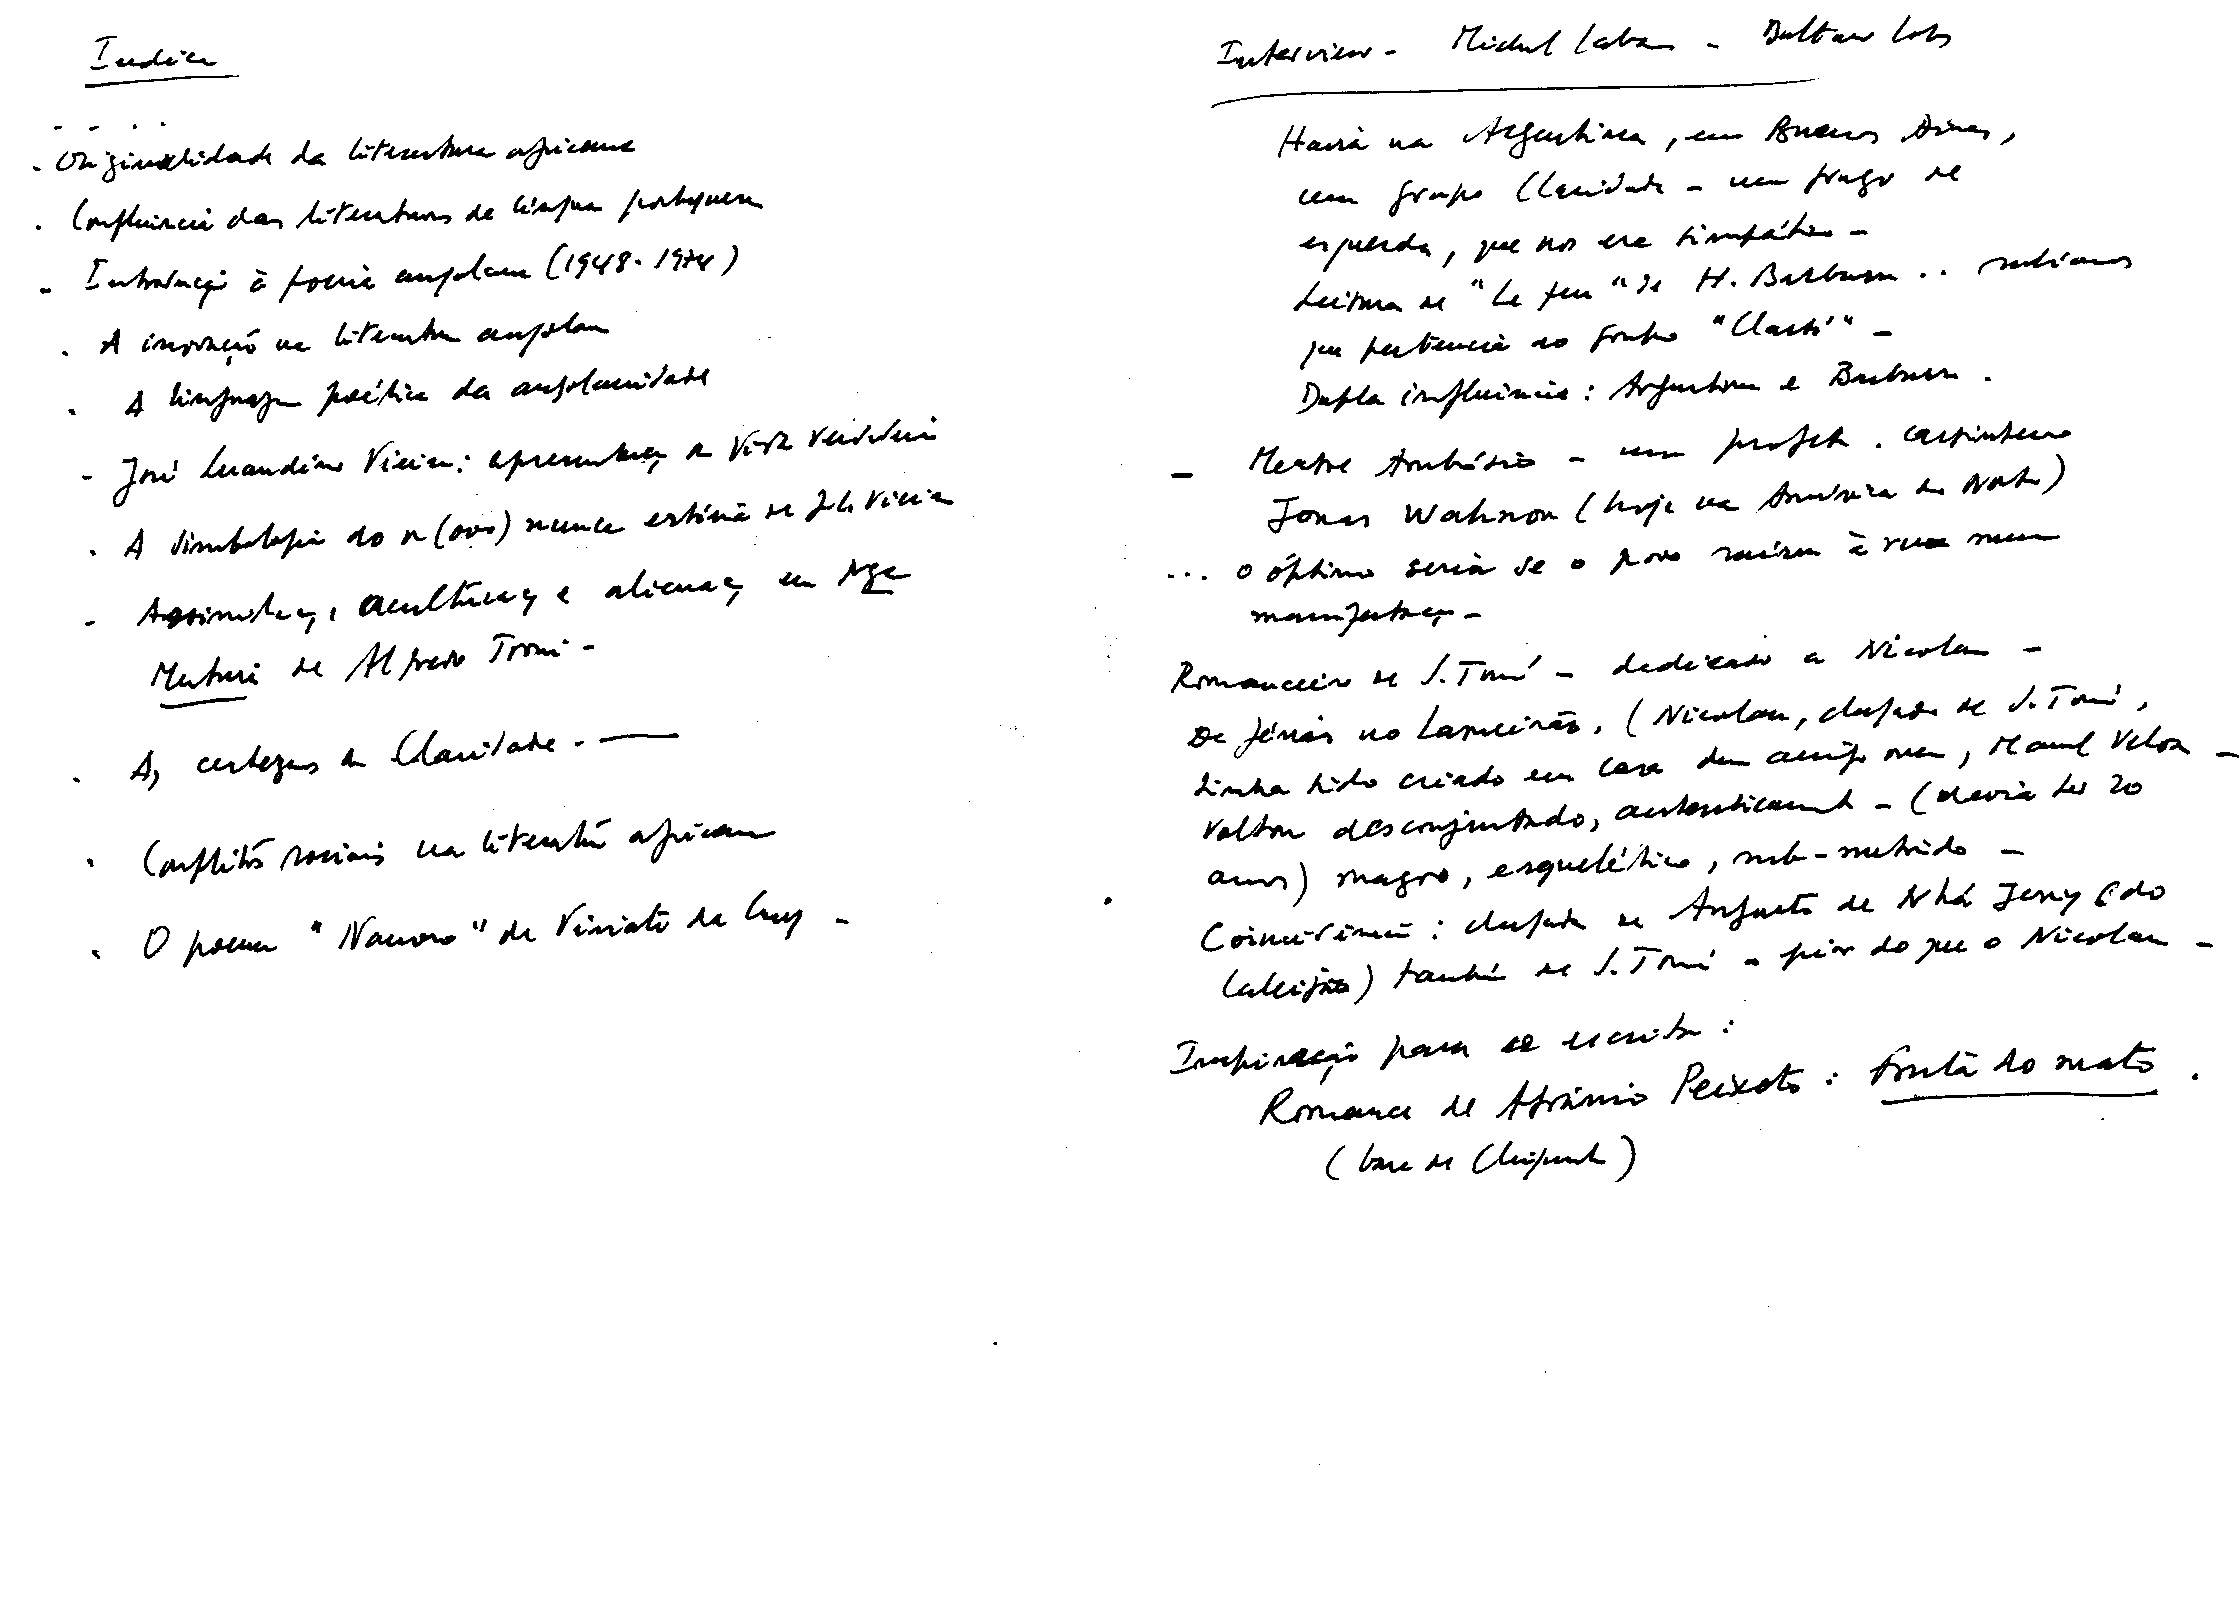 Indice
- - . .
- Originalidade da literatura africana
. Confluência das literaturas de língua portuguesa
- Introdução à poesia angolana (1948-1974)
. A inovação na literatura angolana
. A linguagem poética da angolanidade
- José Luandino Vieira: apresentação da Vida Verdadeira
. A simbologia do n(ovo) numa estória de J. L. Vieira
- Assimilação, aculturação e alienação em Nga
Muturi de Alfredo Troni -
. As certezas da Claridade . —
. Conflitos sociais na literatura africana
. O poema "Namoro" de Viriato da Cruz -
Interview - Michel Laban - Baltasar Lopes
Havia na Argentina, em Buenos Aires,
um grupo Claridade - um grupo de
esquerda, que nos era simpático -
Leitura de "Le feu" de H. Barbusse .. sabíamos
que pertencia ao grupo "Clarté" -
Dupla influência: Argentina e Barbusse.
- Mestre Ambrósio - um profeta. carpinteiro
Jonas Wahnon (hoje na América do Norte)
... o óptimo seria se o povo saísse à rua numa
manifestação -
Romanceiro de S. Tomé - dedicado a Nicolau -
De férias no Lameirão. (Nicolau, chegado de S. Tomé,
tinha sido criado em casa dum amigo meu, Manuel Veloso -
Voltou desconjuntado, autenticamente - (devia ter 20
anos) magro, esquelético, sub-nutrido -
Coincidência: chegada de Augusto de Nhá Jenny (do
Caleijão) também de S. Tomé - pior do que o Nicolau -
Inspiração para a escrita:
Romance de Afrânio Peixoto: Fruta do mato.
(base de Chiquinho)